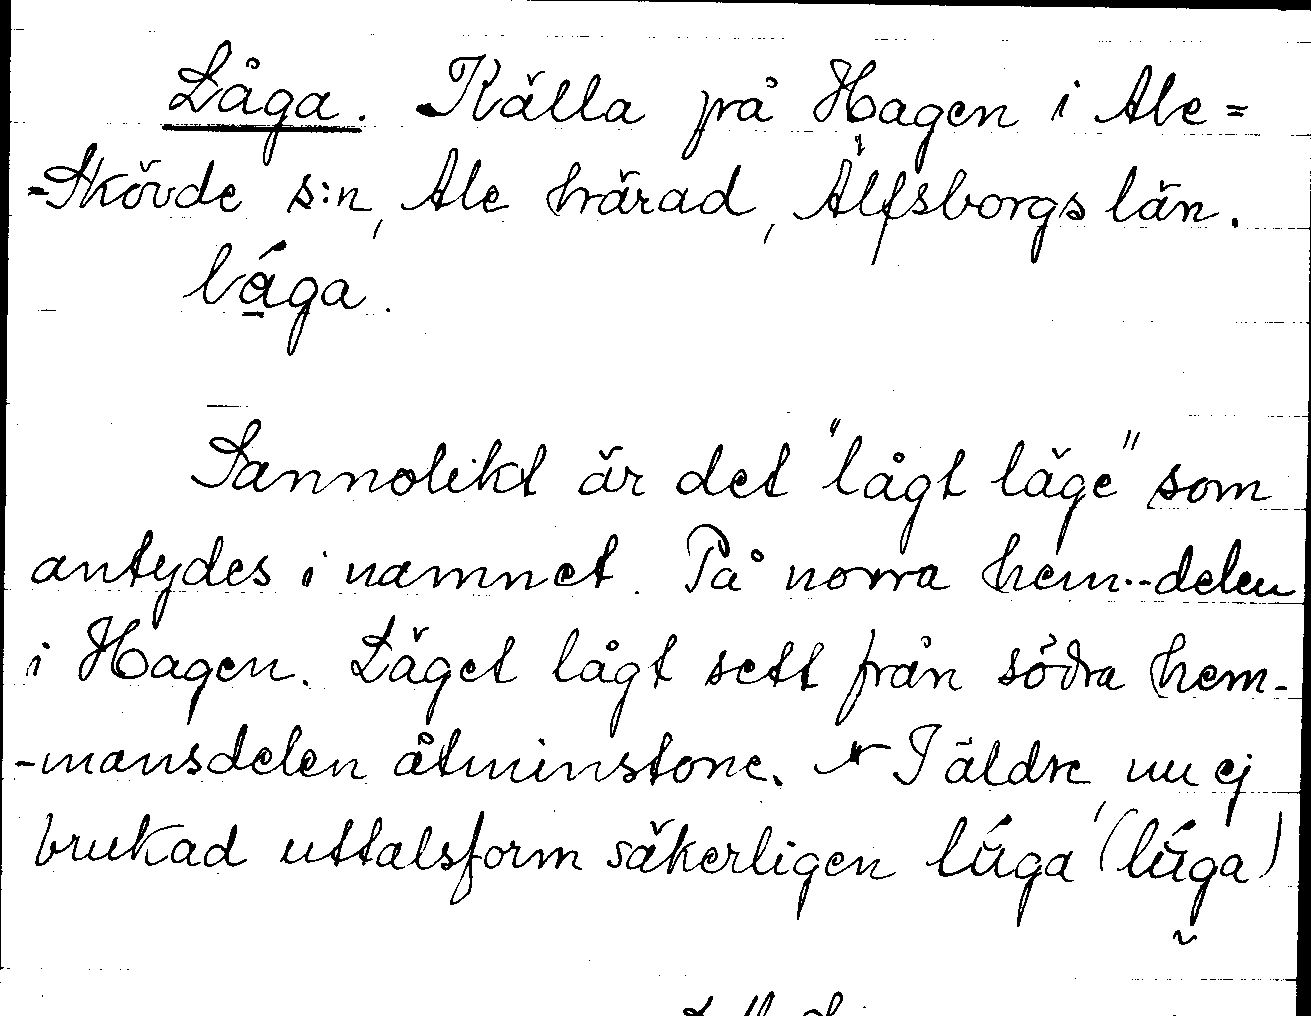 Låga. Källa på Hagen i Ale=
=Skövde s:n, Ale härad, Älfsborgs län.
lága.
Sannolikt är det "lågt läge" som
antydes i namnet. På norra hem--delen
i Hagen. Läget lågt sett från södra hem-
-mansdelen åtminstone. I äldre, nu ej
brukad uttalsform säkerligen lúga (lúga)